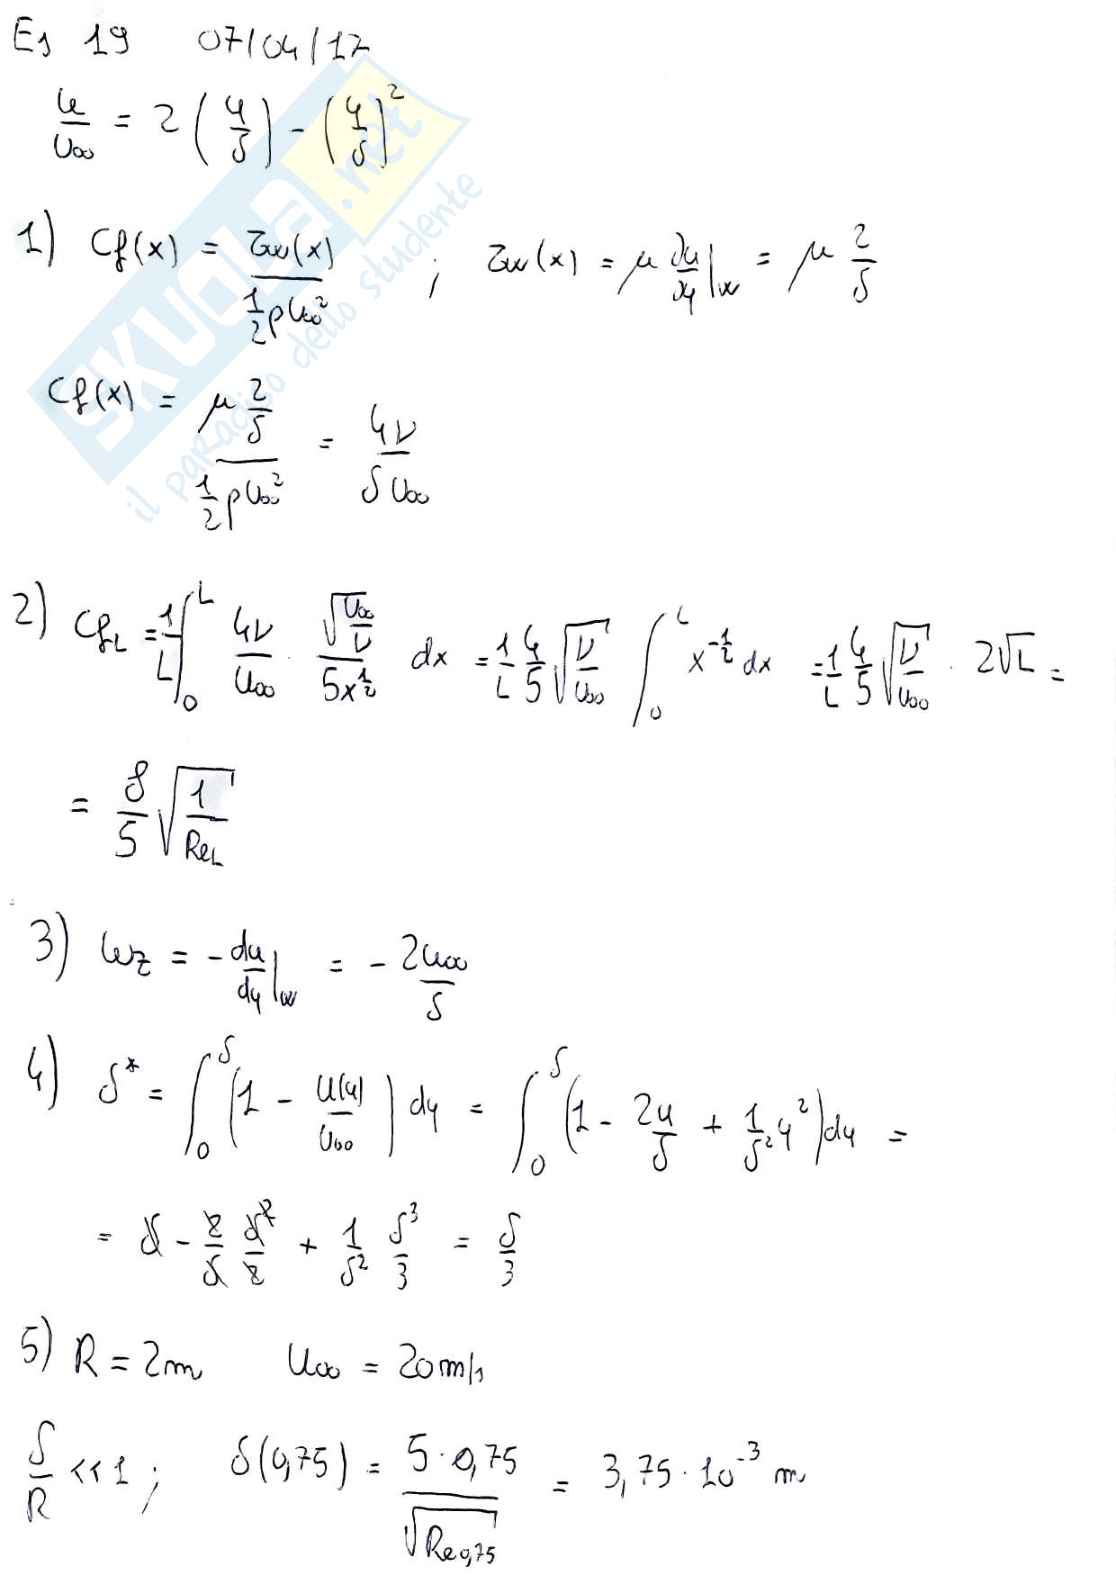 Es 19 07/04/17
u/U∞ = 2 (y/δ) - (y/δ)²
1) Cf(x) = τw(x) / ½ρU∞² ; τw(x) = μ ∂u/∂y|w = μ 2/δ
Cf(x) = μ 2/δ / ½ρU∞² = 4ν / δU∞
2) CfL = 1/L ∫₀ᴸ 4ν/U∞ · √(U∞/ν) / 5x^½ dx = 1/L 4/5 √(ν/U∞) ∫₀ᴸ x^-½ dx = 1/L 4/5 √(ν/U∞) · 2√L =
= 8/5 √(1/ReL)
3) ωz = - du/dy|w = - 2U∞/δ
4) δ* = ∫₀^δ (1 - u(y)/U∞) dy = ∫₀^δ (1 - 2y/δ + 1/δ² y²) dy =
= δ - 2/δ δ²/2 + 1/δ² δ³/3 = δ/3
5) R = 2m U∞ = 20 m/s
δ/R << 1 ; δ(0,75) = 5 · 0,75 / √Re0,75 = 3,75 · 10⁻³ m
SKUOLA.net
il paradiso dello studente